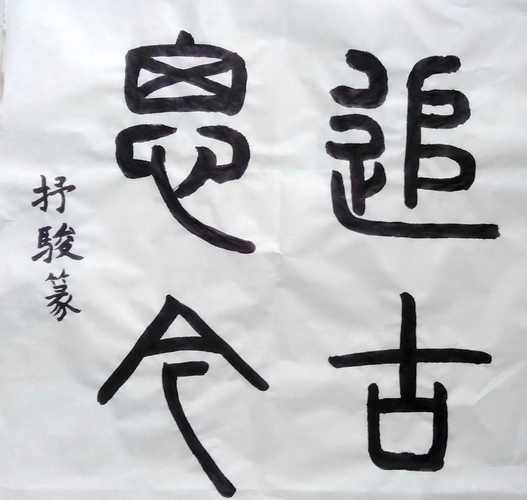 追古
思今
抒駿篆